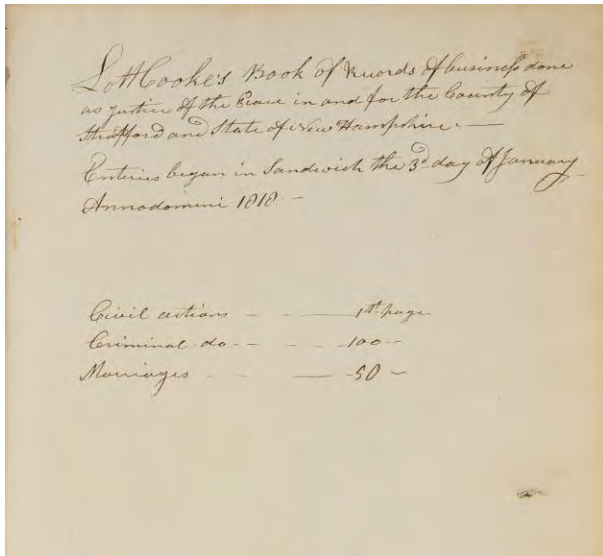 Lott Cooke's Book of Records of business done
as justice of the Peace in and for the County of
Strafford and State of New Hampshire. —
Enteries began in Sandwich the 3d day of January
Annodomini 1818 —
Civil actions — — — 1st page
Criminal do — — — 100 —
Marriages — — — 50 —